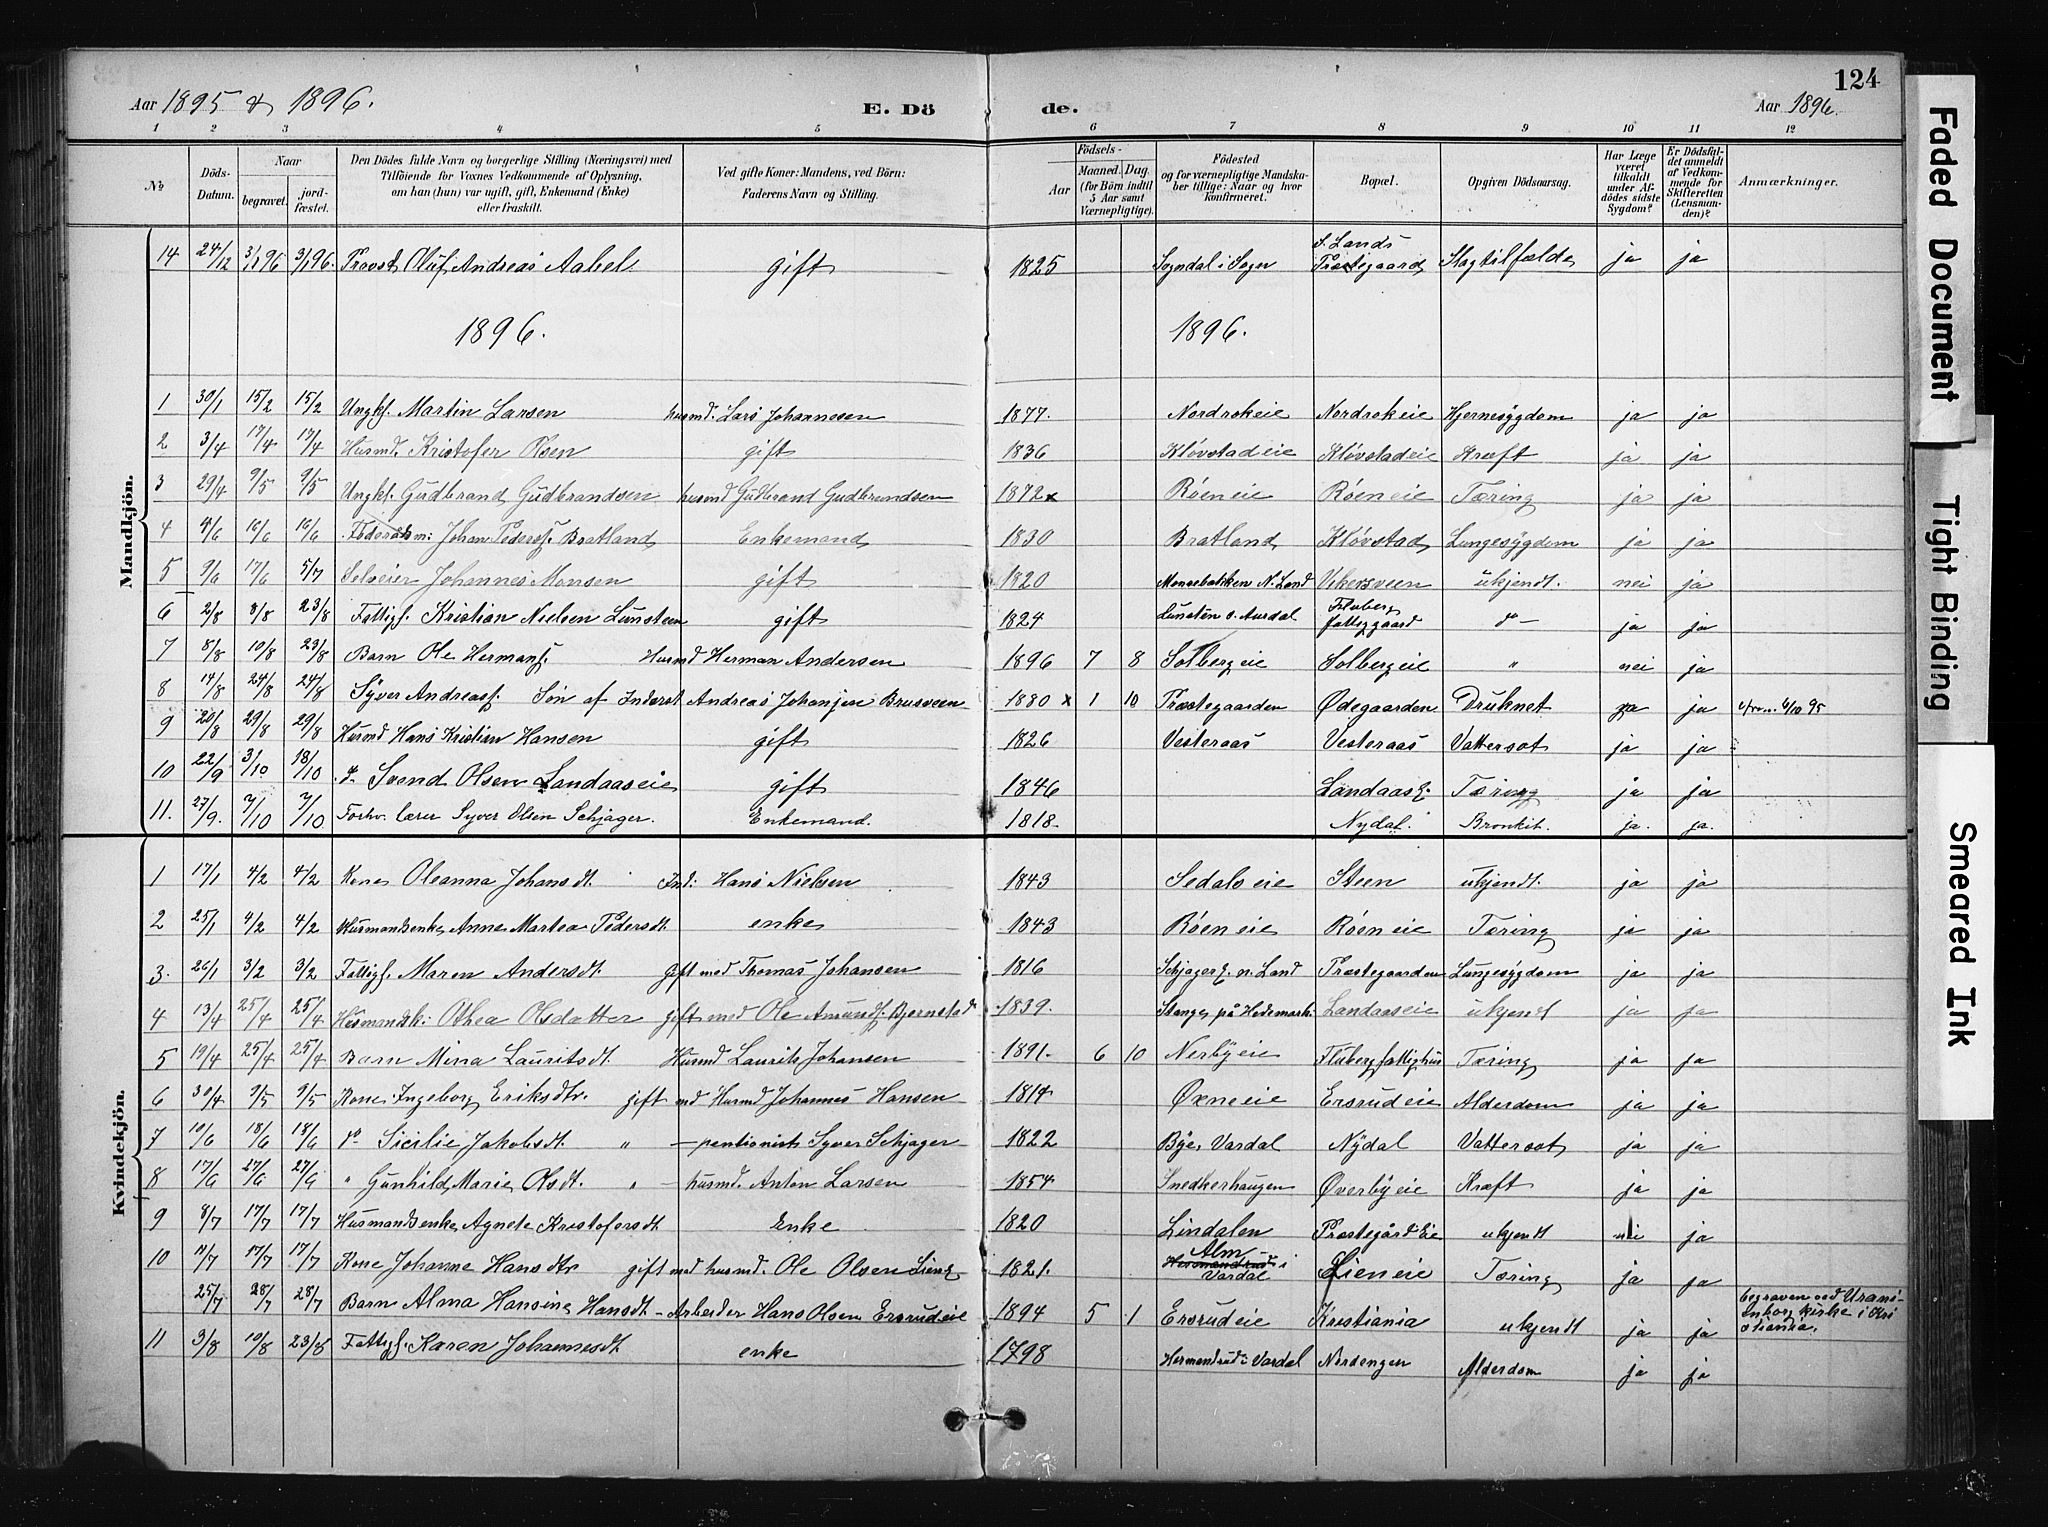 124
Aar 1895 & 1896. E. Dö de. Aar 1896.
1 2 3 4 5 6 7 8 9 10 11 12
No. Döds-Datum. Naar begravet. jordfæstet. Den Dödes fulde Navn og borgerlige Stilling (Næringsvei) med Tilföiende for Voxnes Vedkommende af Oplysning, om han (hun) var ugift, gift, Enkemand (Enke) eller fraskilt. Ved gifte Koner: Mandens, ved Börn: Faderens Navn og Stilling. Födsels- Aar Maaned. Dag. (for Börn indtil 5 Aar samt Værnepligtige). Födested og for værnepligtige Mandskaber tillige: Naar og hvor konfirmeret. Bopæl. Opgiven Dödsaarsag. Har Læge været tilkaldt under Afdödes sidste Sygdom? Er Dödsfaldet anmeldt af Vedkommende for Skifteretten (Lensmanden)? Anmærkninger.
Mandkjön.
14 24/12 3/1 96 3/1 96. Provst Oluf Andreas Aabel gift 1825 Sogndal i Sogn S. Lands Præstegaard Slagtilfælde ja ja
1896. 1896.
1 30/1 15/2 15/2 Ungk. Martin Larsen husmd. Lars Johannesen 1877. Nordrokeie Nordrokeie Hjernesygdom ja ja
2 3/4 17/4 17/4 Husmd. Kristofer Olsen gift 1836 Kløvstadeie Kløvstadeie Kræft ja ja
3 29/4 9/5 9/5 Ungk. Gudbrand Gudbrandsen husmd Gudbrand Gudbrandsen 1872 x Røeneie Røeneie Tæring ja ja
4 4/6 16/6 16/6 Johan Peders. Bratland Enkemand 1830 Bratland Kløvstad Lungesygdom ja ja
5 9/6 17/6 5/7 Selveier Johannes Monsen gift 1820 N. Land Ukersveen ukjendt. nei ja
6 2/8 8/8 23/8 Fattigl. Kristian Nielsen Lunsteen gift 1824 Lunsten ø. Aurdal Fluberg fattiggaard do — ja ja
7 8/8 10/8 23/8 Barn Ole Hermans. Husmd Herman Andersen 1896 7 8 Solbergeie Solbergeie " nei ja
8 14/8 24/8 24/8 Syver Andreas. Søn af Inderst Andreas Johansen Brusveen 1880 x 1 10 Præstegaarden Ødegaarden Druknet ja 6/10 95
9 20/8 29/8 29/8 Husmd Hans Kristian Hansen gift 1826 Vesteraas Vesteraas Vattersot ja ja
10 22/9 3/10 18/10 Svend Olsen Landaaseie gift 1846 Landaase. Tæring ja ja
11. 27/9. 7/10 7/10 Forhv. lærer Syver Olsen Schjager. Enkemand. 1818. Nydal. Bronkit. ja. ja.
Kvindekjön.
1 17/1 4/2 4/2 Kone Oleanna Johansdt. Ind: Hans Nielsen 1843 Sedalseie Steen ukjendt. ja ja
2 25/1 4/2 4/2 Husmandsenke Anne Martea Pedersdt. enke 1843 Røeneie Røeneie Tæring ja ja
3. 26/1 3/2 3/2 Fattigl. Maren Andersdt. gift med Thomas Johansen 1816 Schjagere. n. Land Præstegaarden Lungesygdom ja ja
4 13/4 25/4 25/4 Husmandsk: Othea Olsdatter gift med Ole Amunds. Bjørnstad 1839. Stange på Hedemark: Landaaseie ukjendt ja ja
5 19/4 25/4 25/4 Barn Mina Lauritsdt. Husmd Laurits Johansen 1891. 6 10 Nerbyeie Fluberg fattighus Tæring ja ja
6 30/4 9/5 9/5 Kone Ingeborg Eriksdtr. gift md Husmd Johannes Hansen 1814 Øxneeie Ersrudeie Alderdom ja ja
7 10/6 18/6 18/6 do Sicilie Jakobsdt. " — pentionist Syver Schjager 1822 Bye, Vardal Nydal Vattersot ja ja
8 17/6 27/6 27/6 " Gunhild Marie Olsdt. " — husmd. Anton Larsen 1854 Snedkerhaugen Øverbyeie Kræft ja ja
9 8/7 17/7 17/7 Husmandsenke Agnete Kristofersdt Enke 1820 Lindalen Præstegårdeie ukjendt nei ja
10 11/7 17/7 17/7 Kone Johanne Hansdtr gift med husmd. Ole Olsen Liene. 1821. Alm i Vardal Lieneie Tæring ja ja
25/7 28/7 28/7 Barn Alma Hansine Hansdt. — Arbeider Hans Olsen Ersrudeie 1894 5 1 Ersrudeie Kristiania ukjendt ja ja begraven ved Uranienborg kirke i Kristiania.
11 3/8 10/8 23/8 Fattigl. Karen Johannesdt enke 1798 Hermanrud i Vardal Nordengen Alderdom ja ja
Faded Document
Tight Binding
Smeared Ink